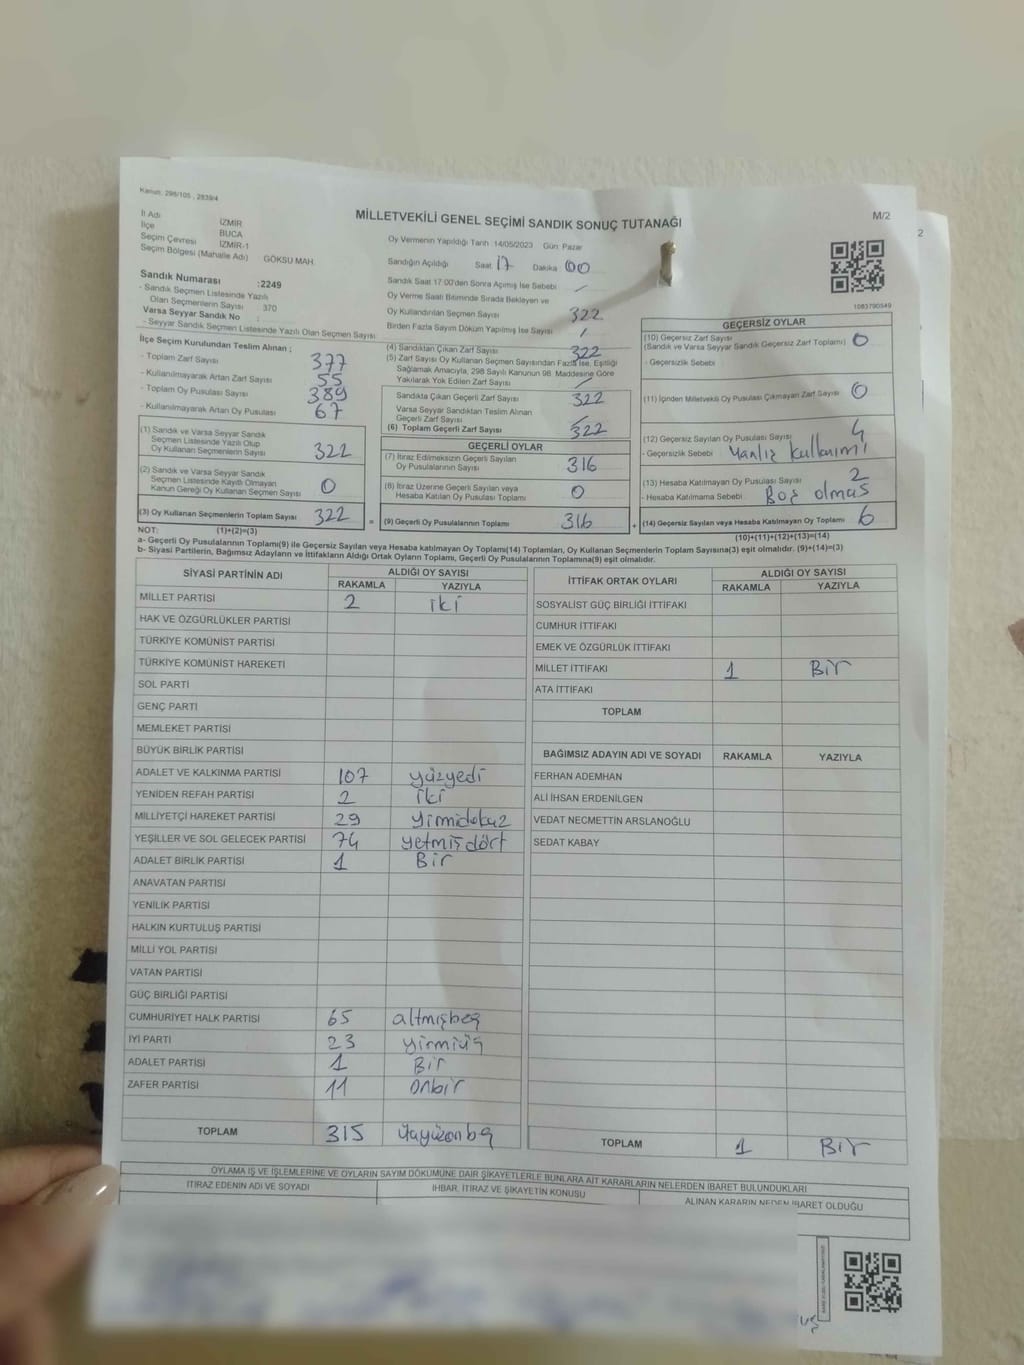 Kanun: 298/105 , 2839/4
MİLLETVEKİLİ GENEL SEÇİMİ SANDIK SONUÇ TUTANAĞI
M/2
2
İl Adı İZMİR
İlçe BUCA
Seçim Çevresi İZMİR-1
Seçim Bölgesi (Mahalle Adı) GÖKSU MAH.
Sandık Numarası :2249
- Sandık Seçmen Listesinde Yazılı
Olan Seçmenlerin Sayısı 370
Varsa Seyyar Sandık No :
- Seyyar Sandık Seçmen Listesinde Yazılı Olan Seçmen Sayısı
İlçe Seçim Kurulundan Teslim Alınan ;
- Toplam Zarf Sayısı 377
- Kullanılmayarak Artan Zarf Sayısı 55
- Toplam Oy Pusulası Sayısı 389
- Kullanılmayarak Artan Oy Pusulası 67
(1) Sandık ve Varsa Seyyar Sandık
Seçmen Listesinde Yazılı Olup
Oy Kullanan Seçmenlerin Sayısı 322
(2) Sandık ve Varsa Seyyar Sandık
Seçmen Listesinde Kayıtlı Olmayan
Kanun Gereği Oy Kullanan Seçmen Sayısı 0
(3) Oy Kullanan Seçmenlerin Toplam Sayısı 322
Oy Vermenin Yapıldığı Tarih 14/05/2023 Gün: Pazar
Sandığın Açıldığı Saat 17 Dakika 00
Sandık Saat 17:00'den Sonra Açımış İse Sebebi
Oy Verme Saati Bitiminde Sırada Bekleyen ve
Oy Kullandırılan Seçmen Sayısı 322
Birden Fazla Sayım Döküm Yapılmış İse Sayısı /
(4) Sandıktan Çıkan Zarf Sayısı 322
(5) Zarf Sayısı Oy Kullanan Seçmen Sayısından Fazla İse, Eşitliği
Sağlamak Amacıyla, 298 Sayılı Kanunun 98. Maddesine Göre
Yakılarak Yok Edilen Zarf Sayısı
Sandıkta Çıkan Geçerli Zarf Sayısı 322
Varsa Seyyar Sandıktan Teslim Alınan
Geçerli Zarf Sayısı
(6) Toplam Geçerli Zarf Sayısı 322
GEÇERLİ OYLAR
(7) İtiraz Edilmeksizin Geçerli Sayılan
Oy Pusulalarının Sayısı 316
(8) İtiraz Üzerine Geçerli Sayılan veya
Hesaba Katılan Oy Pusulası Toplamı 0
= (9) Geçerli Oy Pusulalarının Toplamı 316
1083790849
GEÇERSİZ OYLAR
(10) Geçersiz Zarf Sayısı
(Sandık ve Varsa Seyyar Sandık Geçersiz Zarf Toplamı) 0
- Geçersizlik Sebebi
(11) İçinden Milletvekili Oy Pusulası Çıkmayan Zarf Sayısı 0
(12) Geçersiz Sayılan Oy Pusulası Sayısı 4
- Geçersizlik Sebebi Yanlız kullanımı
(13) Hesaba Katılmayan Oy Pusulası Sayısı 2
- Hesaba Katılmama Sebebi Boş olmas
+ (14) Geçersiz Sayılan veya Hesaba Katılmayan Oy Toplamı 6
NOT: (1)+(2)=(3)
(10)+(11)+(12)+(13)=(14)
a- Geçerli Oy Pusulalarının Toplamı(9) ile Geçersiz Sayılan veya Hesaba katılmayan Oy Toplamı(14) Toplamları, Oy Kullanan Seçmenlerin Toplam Sayısına(3) eşit olmalıdır. (9)+(14)=(3)
b- Siyasi Partilerin, Bağımsız Adayların ve İttifakların Aldığı Ortak Oyların Toplamı, Geçerli Oy Pusulalarının Toplamına(9) eşit olmalıdır.
SİYASİ PARTİNİN ADI ALDIĞI OY SAYISI
RAKAMLA YAZIYLA
MİLLET PARTİSİ 2 iki
HAK VE ÖZGÜRLÜKLER PARTİSİ
TÜRKİYE KOMÜNİST PARTİSİ
TÜRKİYE KOMÜNİST HAREKETİ
SOL PARTİ
GENÇ PARTİ
MEMLEKET PARTİSİ
BÜYÜK BİRLİK PARTİSİ
ADALET VE KALKINMA PARTİSİ 107 yüzyedi
YENİDEN REFAH PARTİSİ 2 iki
MİLLİYETÇİ HAREKET PARTİSİ 29 yirmidokuz
YEŞİLLER VE SOL GELECEK PARTİSİ 74 yetmişdört
ADALET BİRLİK PARTİSİ 1 Bir
ANAVATAN PARTİSİ
YENİLİK PARTİSİ
HALKIN KURTULUŞ PARTİSİ
MİLLİ YOL PARTİSİ
VATAN PARTİSİ
GÜÇ BİRLİĞİ PARTİSİ
CUMHURİYET HALK PARTİSİ 65 altmışbeş
İYİ PARTİ 23 yirmiüç
ADALET PARTİSİ 1 Bir
ZAFER PARTİSİ 11 onbir
TOPLAM 315 üçyüzonbş
İTTİFAK ORTAK OYLARI ALDIĞI OY SAYISI
RAKAMLA YAZIYLA
SOSYALİST GÜÇ BİRLİĞİ İTTİFAKI
CUMHUR İTTİFAKI
EMEK VE ÖZGÜRLÜK İTTİFAKI
MİLLET İTTİFAKI 1 Bir
ATA İTTİFAKI
TOPLAM
BAĞIMSIZ ADAYIN ADI VE SOYADI RAKAMLA YAZIYLA
FERHAN ADEMHAN
ALİ İHSAN ERDENİLGEN
VEDAT NECMETTİN ARSLANOĞLU
SEDAT KABAY
TOPLAM 1 Bir
OYLAMA İŞ VE İŞLEMLERİNE VE OYLARIN SAYIM DÖKÜMÜNE DAİR ŞİKAYETLERLE BUNLARA AİT KARARLARIN NELERDEN İBARET BULUNDUKLARI
İTİRAZ EDENİN ADI VE SOYADI İHBAR, İTİRAZ VE ŞİKAYETİN KONUSU ALINAN KARARIN NEDEN İBARET OLDUĞU